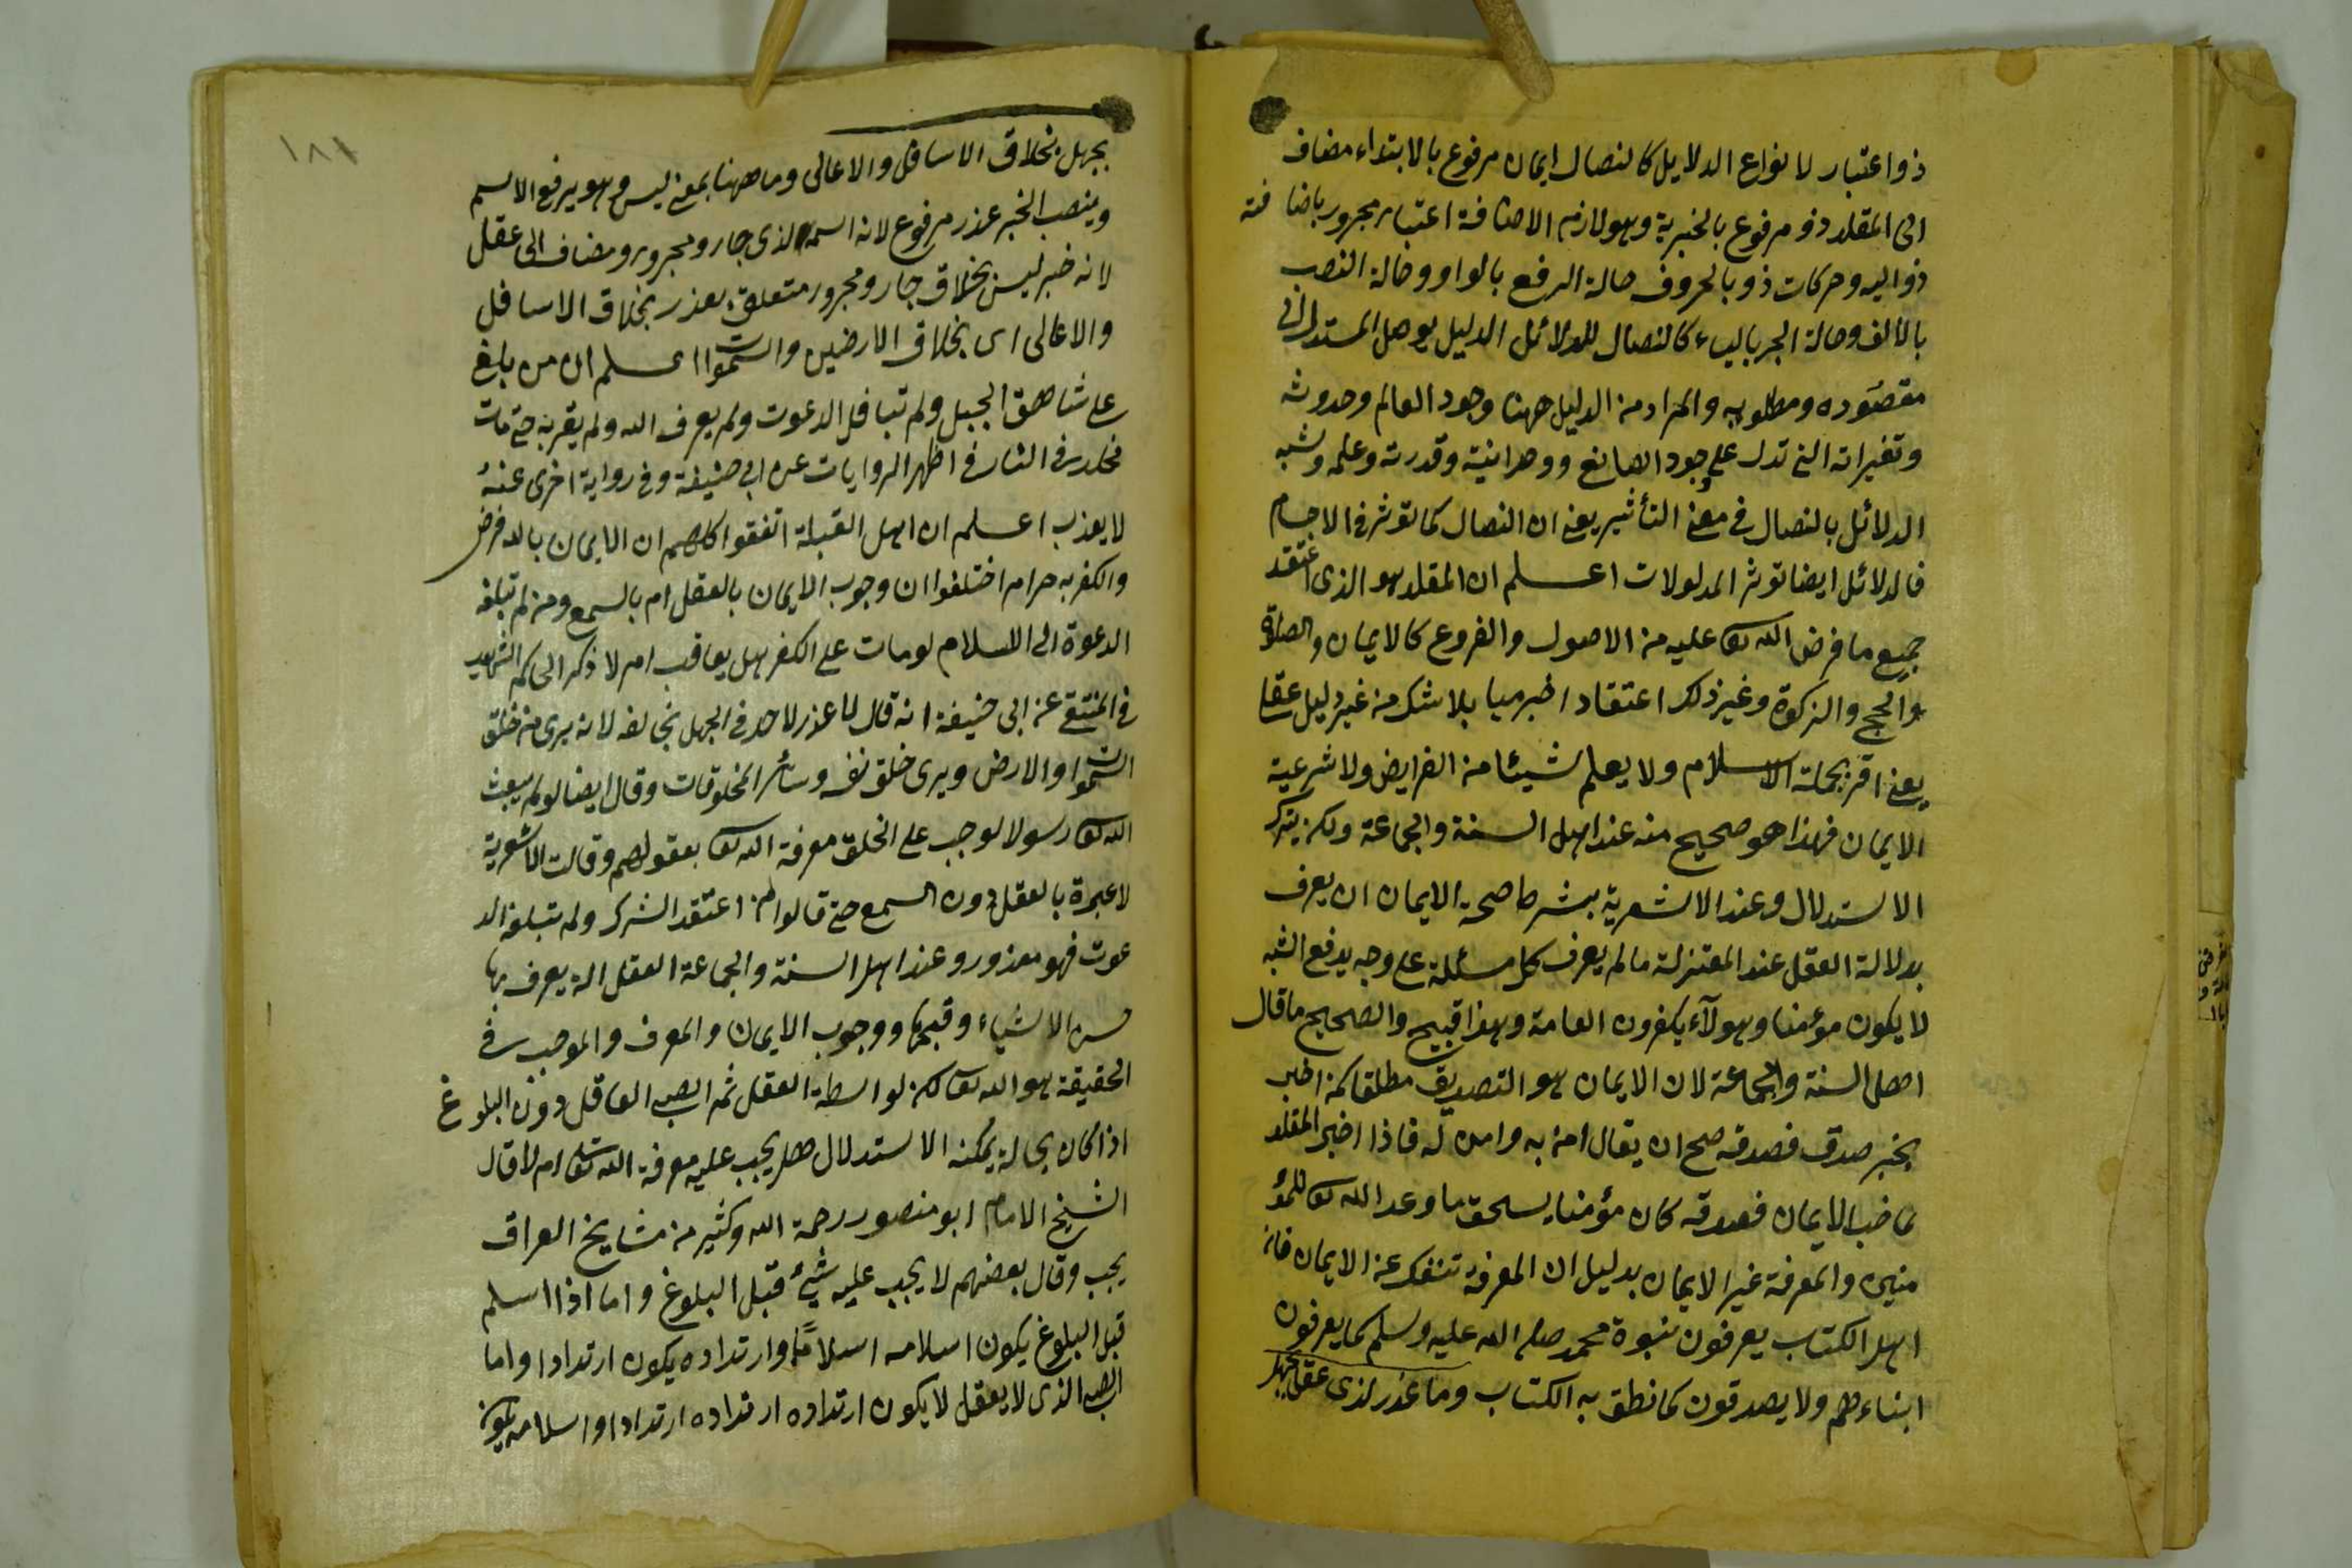 ذو اعتبار لانواع الدلايل كالنصال ايمان مرفوع بالابتداء مضاف
الى المقلد ذو مرفوع بالخبرية وهو لازم الاضافة اعتبار مجرور باضا فته
ذو اليه وحركات ذو بالحروف حالة الرفع بالواو وحالة النصب
بالالف وحالة الجر بالياء كالنصال للدلائل الدليل يوصل المستدل الى
مقصوده ومطلوبه والمراد من الدليل ههنا وجود العالم وحدوثه
وتغيراته التى تدل على وجود الصانع ووحدانيته وقدرته وعلمه وشبه
الدلائل بالنصال فى معنى التأثير يعنى ان النصال كما تؤثر فى الاجسام
فالدلائل ايضا تؤثر المدلولات اعلم ان المقلد هو الذى اعتقد
جميع ما فرض الله تعا عليه من الاصول والفروع كالايمان والصلوة
والحج والزكوة وغير ذلك اعتقادا بلا شك من غير دليل عقلى
يعنى اقر بجملة الاسلام ولا يعلم شيئا من الفرايض ولا شرعية
الايمان فهذا هو صحيح منه عند اهل السنة والجماعة ولكن بترك
الاستدلال وعند الاشعرية بشرط صحة الايمان ان يعرف
بدلالة العقل عند المعتزلة مالم يعرف كل مسئلة على وجه يدفع الشبه
لا يكون مؤمنا وهولآء يكفرون العامة وهذا قبيح والصحيح ما قال
اهل السنة والجماعة لان الايمان هو التصديق مطلقا كمن اخبر
بخبر صدق فصدقه صح ان يقال امن به وامن له فاذا اخبر المقلد
فصدقه كان مؤمنا يستحق ما وعد الله تعا للمؤ
منين والمعرفة غير الايمان بدليل ان المعرفة تنفك عن الايمان فان
اهل الكتاب يعرفون نبوة محمد صلى الله عليه وسلم كما يعرفون
ابناءهم ولا يصدقون كما نطق به الكتاب وما عذر لذى عقل بجهل
١٨١
بجهل بخلاق الاسافل والاعالى وما ههنا بمعنى ليس وهو يرفع الاسم
وينصب الخبر عذر مرفوع لانه اسمه لذى جار ومجرور ومضاف الى عقل
لانه خبر ليس بخلاق جار ومجرور متعلق بعذر بخلاق الاسافل
والاعالى اى بخلاق الارضين والسموات اعلم ان من بلغ
على شاهق الجبل ولم الدعوت ولم يعرف الله ولم يقر به حتى مات
فخلد فى النار فى اظهر الروايات عن ابى حنيفة وفى رواية اخرى عنه
لا يعذب اعلم ان اهل القبلة اتفقوا كلهم ان الايمان بالله فرض
والكفر به حرام اختلفوا ان وجوب الايمان بالعقل ام بالسمع ومن لم تبلغه
الدعوة الى الاسلام لو مات على الكفر هل يعاقب ام لا ذكر الحاكم الشهيد
فى المنتقى عن ابى حنيفة انه قال لا عذر لاحد فى الجهل بخالقه لانه يرى من خلق
السموات والارض ويرى خلق نفسه وسائر المخلوقات وقال ايضا لو لم يبعث
الله تعا رسولا لوجب على الخلق معرفة الله تعا بعقولهم وقالت الاشعرية
لا عبرة بالعقل دون السمع حتى قالوا من اعتقد الشرك ولم تبلغه الد
عوت فهو معذور وعند اهل السنة والجماعة العقل آلة يعرف بها
حسن الاشياء وقبحها ووجوب الايمان والمعرف والموجب فى
الحقيقة هو الله تعا لكن بواسطة العقل ثم الصبى العاقل دون البلوغ
اذا كان بحالة يمكنه الاستدلال هل يجب عليه معرفة الله تعا ام لا قال
الشيخ الامام ابو منصور رحمة الله وكثير من مشايخ العراق
يجب وقال بعضهم لا يجب عليه شئ قبل البلوغ واما اذا اسلم
قبل البلوغ يكون اسلامه اسلاما وارتداده يكون ارتدادا واما
الصبى الذى لا يعقل لا يكون ارتداده ارتداده ارتدادا واسلامه يكون